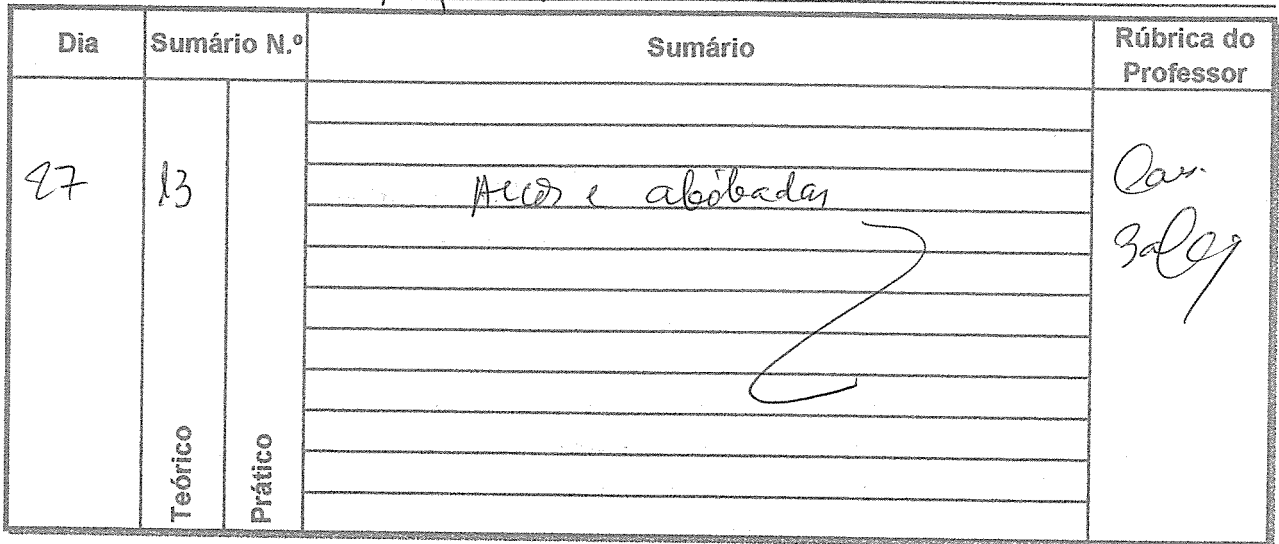 Dia Sumário N.º Sumário Rúbrica do
Professor
27 13 Arcos e abóbadas
Teórico Prático